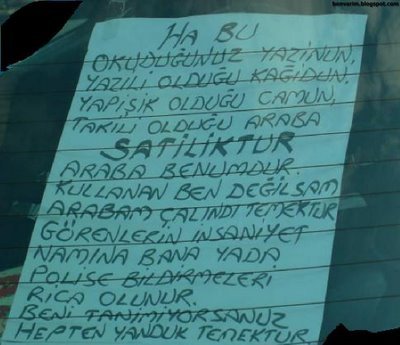 benverim.blogspot.com
HA BU
OKUDUĞUNUZ YAZINUN,
YAZILI OLDUĞU KAĞIDUN,
YAPIŞIK OLDUĞU CAMUN,
TAKILI OLDUĞU ARABA
SATILIKTUR
ARABA BENUMDUR.
KULLANAN BEN DEĞİLSAM
ARABAM ÇALINDI TEMEKTUR
GÖRENLERİN İNSANİYET
NAMINA BANA YADA
POLİSE BİLDİRMELERİ
RİCA OLUNUR.
BENİ TANIMIYORSANUZ
HEPTEN YANDUK TEMEKTUR